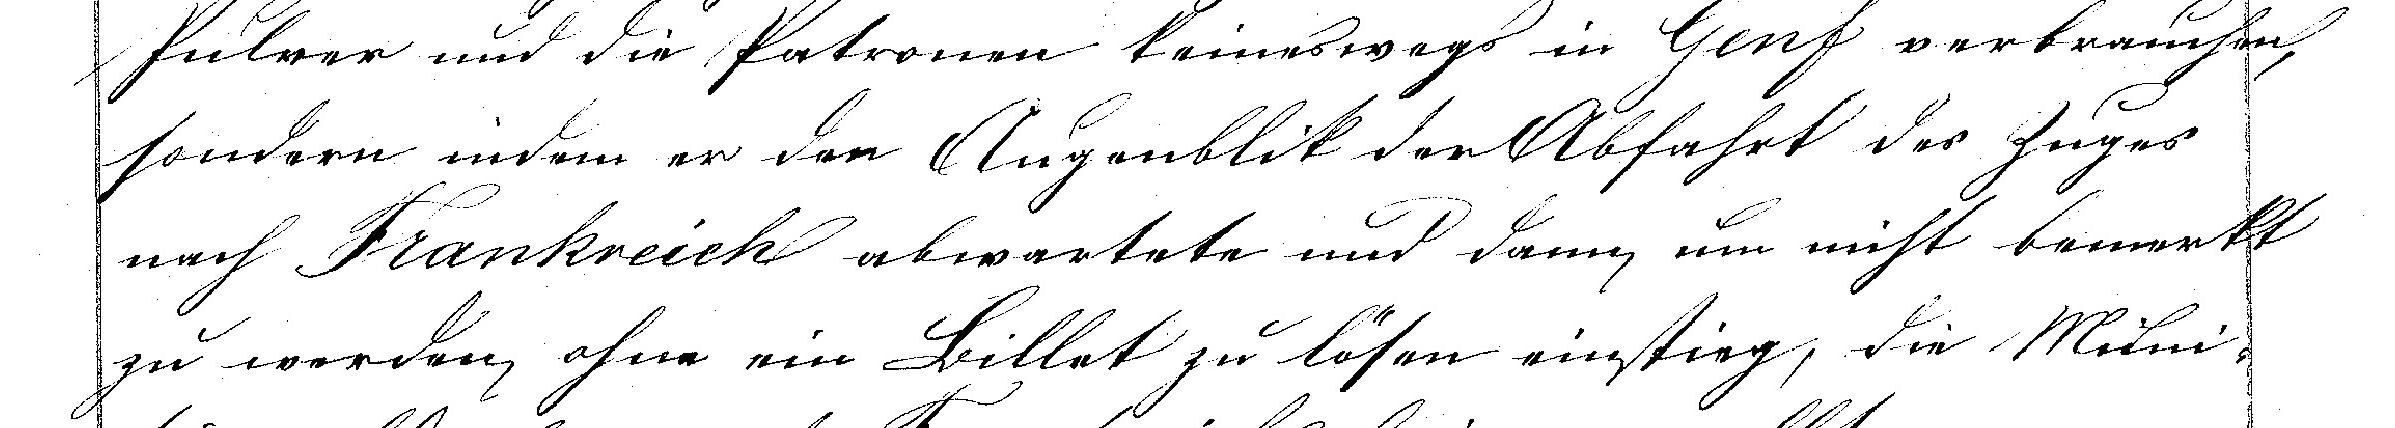 Pulver und die Patronen keineswegs in Genf verbrauchen,
sondern indem er den Augenblik der Abfahrt des Zuges
nach Frankreich abwartete und dann, um nicht bemerkt
zu werden, ohne ein Billet zu lösen einstieg, die Muni-